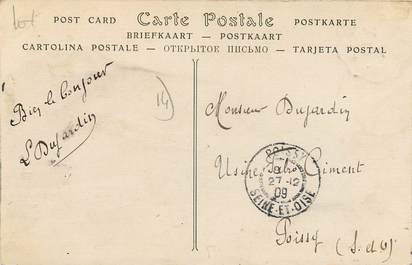 POST CARD Carte Postale POSTKARTE
BRIEFKAART — POSTKAART
CARTOLINA POSTALE — ОТКРЫТОЕ ПИСЬМО — TARJETA POSTAL
Bien le bonjour
L Dujardin
14
Monsieur Dujardin
Usine Ciment
Poissy (S. et O.)
POISSY
27-12
09
SEINE-ET-OISE